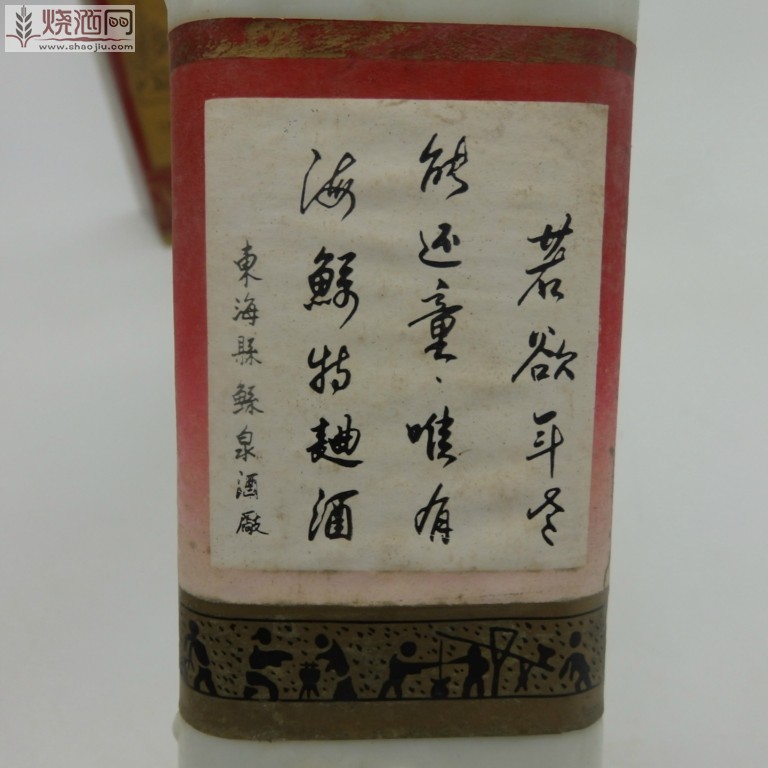 烧酒网
www.shaojiu.com
若欲年老
能还童、唯有
海鰇特麯酒
東海縣鰇泉酒廠